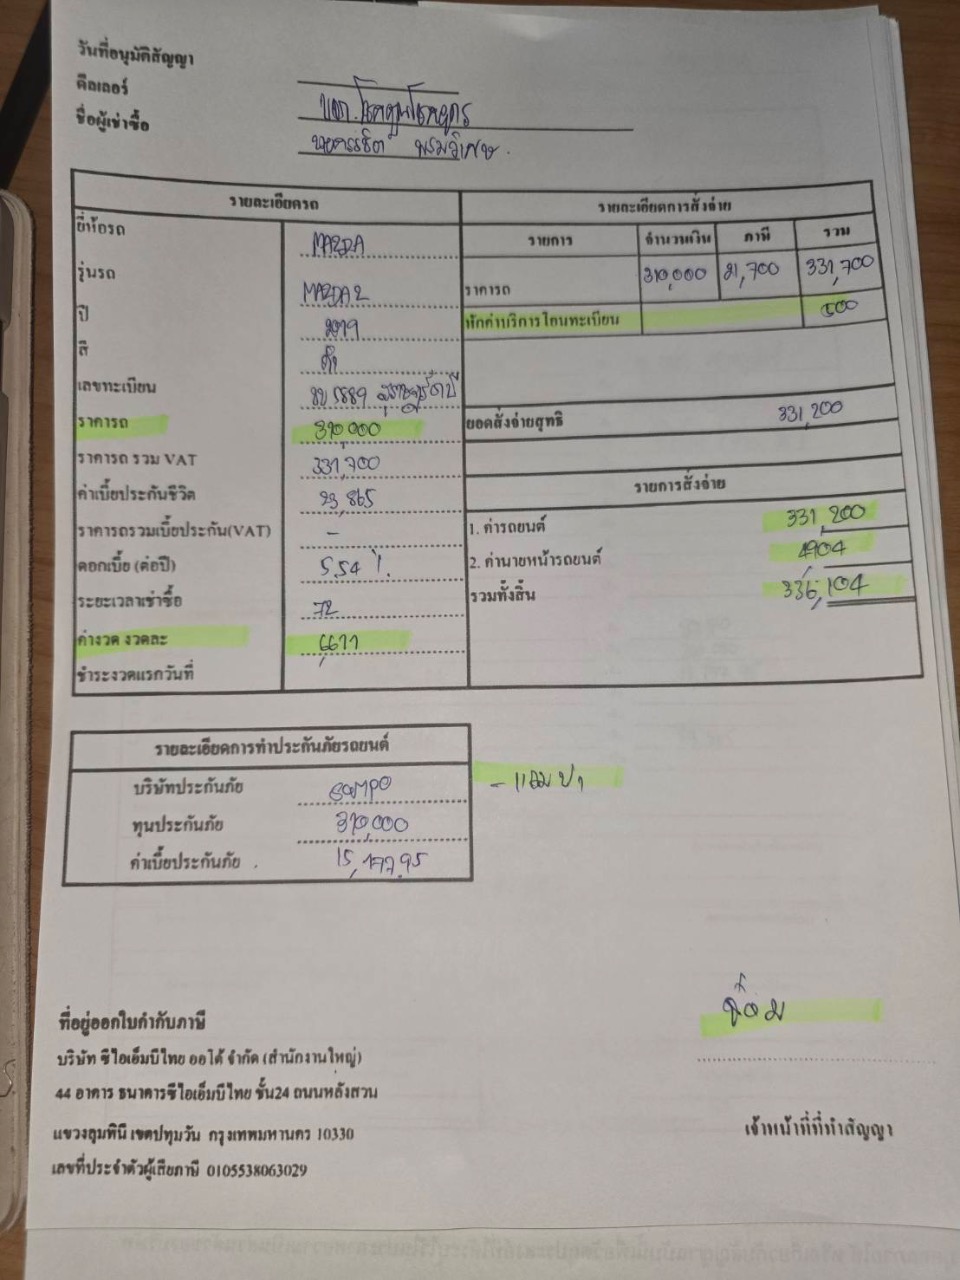 วันที่อนุมัติสัญญา
ดีลเลอร์ หจก.
ชื่อผู้เช่าซื้อ พรมวิเศษ
รายละเอียดรถ
ยี่ห้อรถ MAZDA
รุ่นรถ MAZDA 2
ปี 2019
สี ดำ
เลขทะเบียน สุราษฎร์ธานี
ราคารถ 310,000
ราคารถ รวม VAT 331,700
ค่าเบี้ยประกันชีวิต 23,865
ราคารถรวมเบี้ยประกัน(VAT) -
ดอกเบี้ย (ต่อปี) 5.54 %
ระยะเวลาเช่าซื้อ 72
ค่างวด งวดละ 6,677
ชำระงวดแรกวันที่
รายละเอียดการสั่งจ่าย
รายการ จำนวนเงิน ภาษี รวม
ราคารถ 310,000 21,700 331,700
หักค่าบริการโอนทะเบียน 500
ยอดสั่งจ่ายสุทธิ 331,200
รายการสั่งจ่าย
1. ค่ารถยนต์ 331,200
2. ค่านายหน้ารถยนต์ 4,904
รวมทั้งสิ้น 336,104
รายละเอียดการทำประกันภัยรถยนต์
บริษัทประกันภัย SOMPO
ทุนประกันภัย 310,000
ค่าเบี้ยประกันภัย 15,177.95
- แถม ป1
ที่อยู่ออกใบกำกับภาษี
บริษัท ซีไอเอ็มบีไทย ออโต้ จำกัด (สำนักงานใหญ่)
44 อาคาร ธนาคารซีไอเอ็มบีไทย ชั้น24 ถนนหลังสวน
แขวงลุมพินี เขตปทุมวัน กรุงเทพมหานคร 10330
เลขที่ประจำตัวผู้เสียภาษี 0105538063029
เจ้าหน้าที่ที่ทำสัญญา